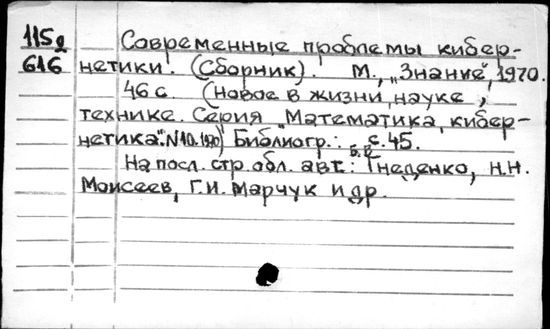 115д
616
Современные проблемы кибер-
нетики. (Сборник). М., „Знание", 1970.
46 с. (новое в жизни, науке,
технике. Серия "Математика, кибер-
нетика". N10. 1970) Библиогр.: с. 45.
На посл. стр. обл. авт.: Гнеденко, Н.Н.
Моисеев, Г.И. Марчук и др.